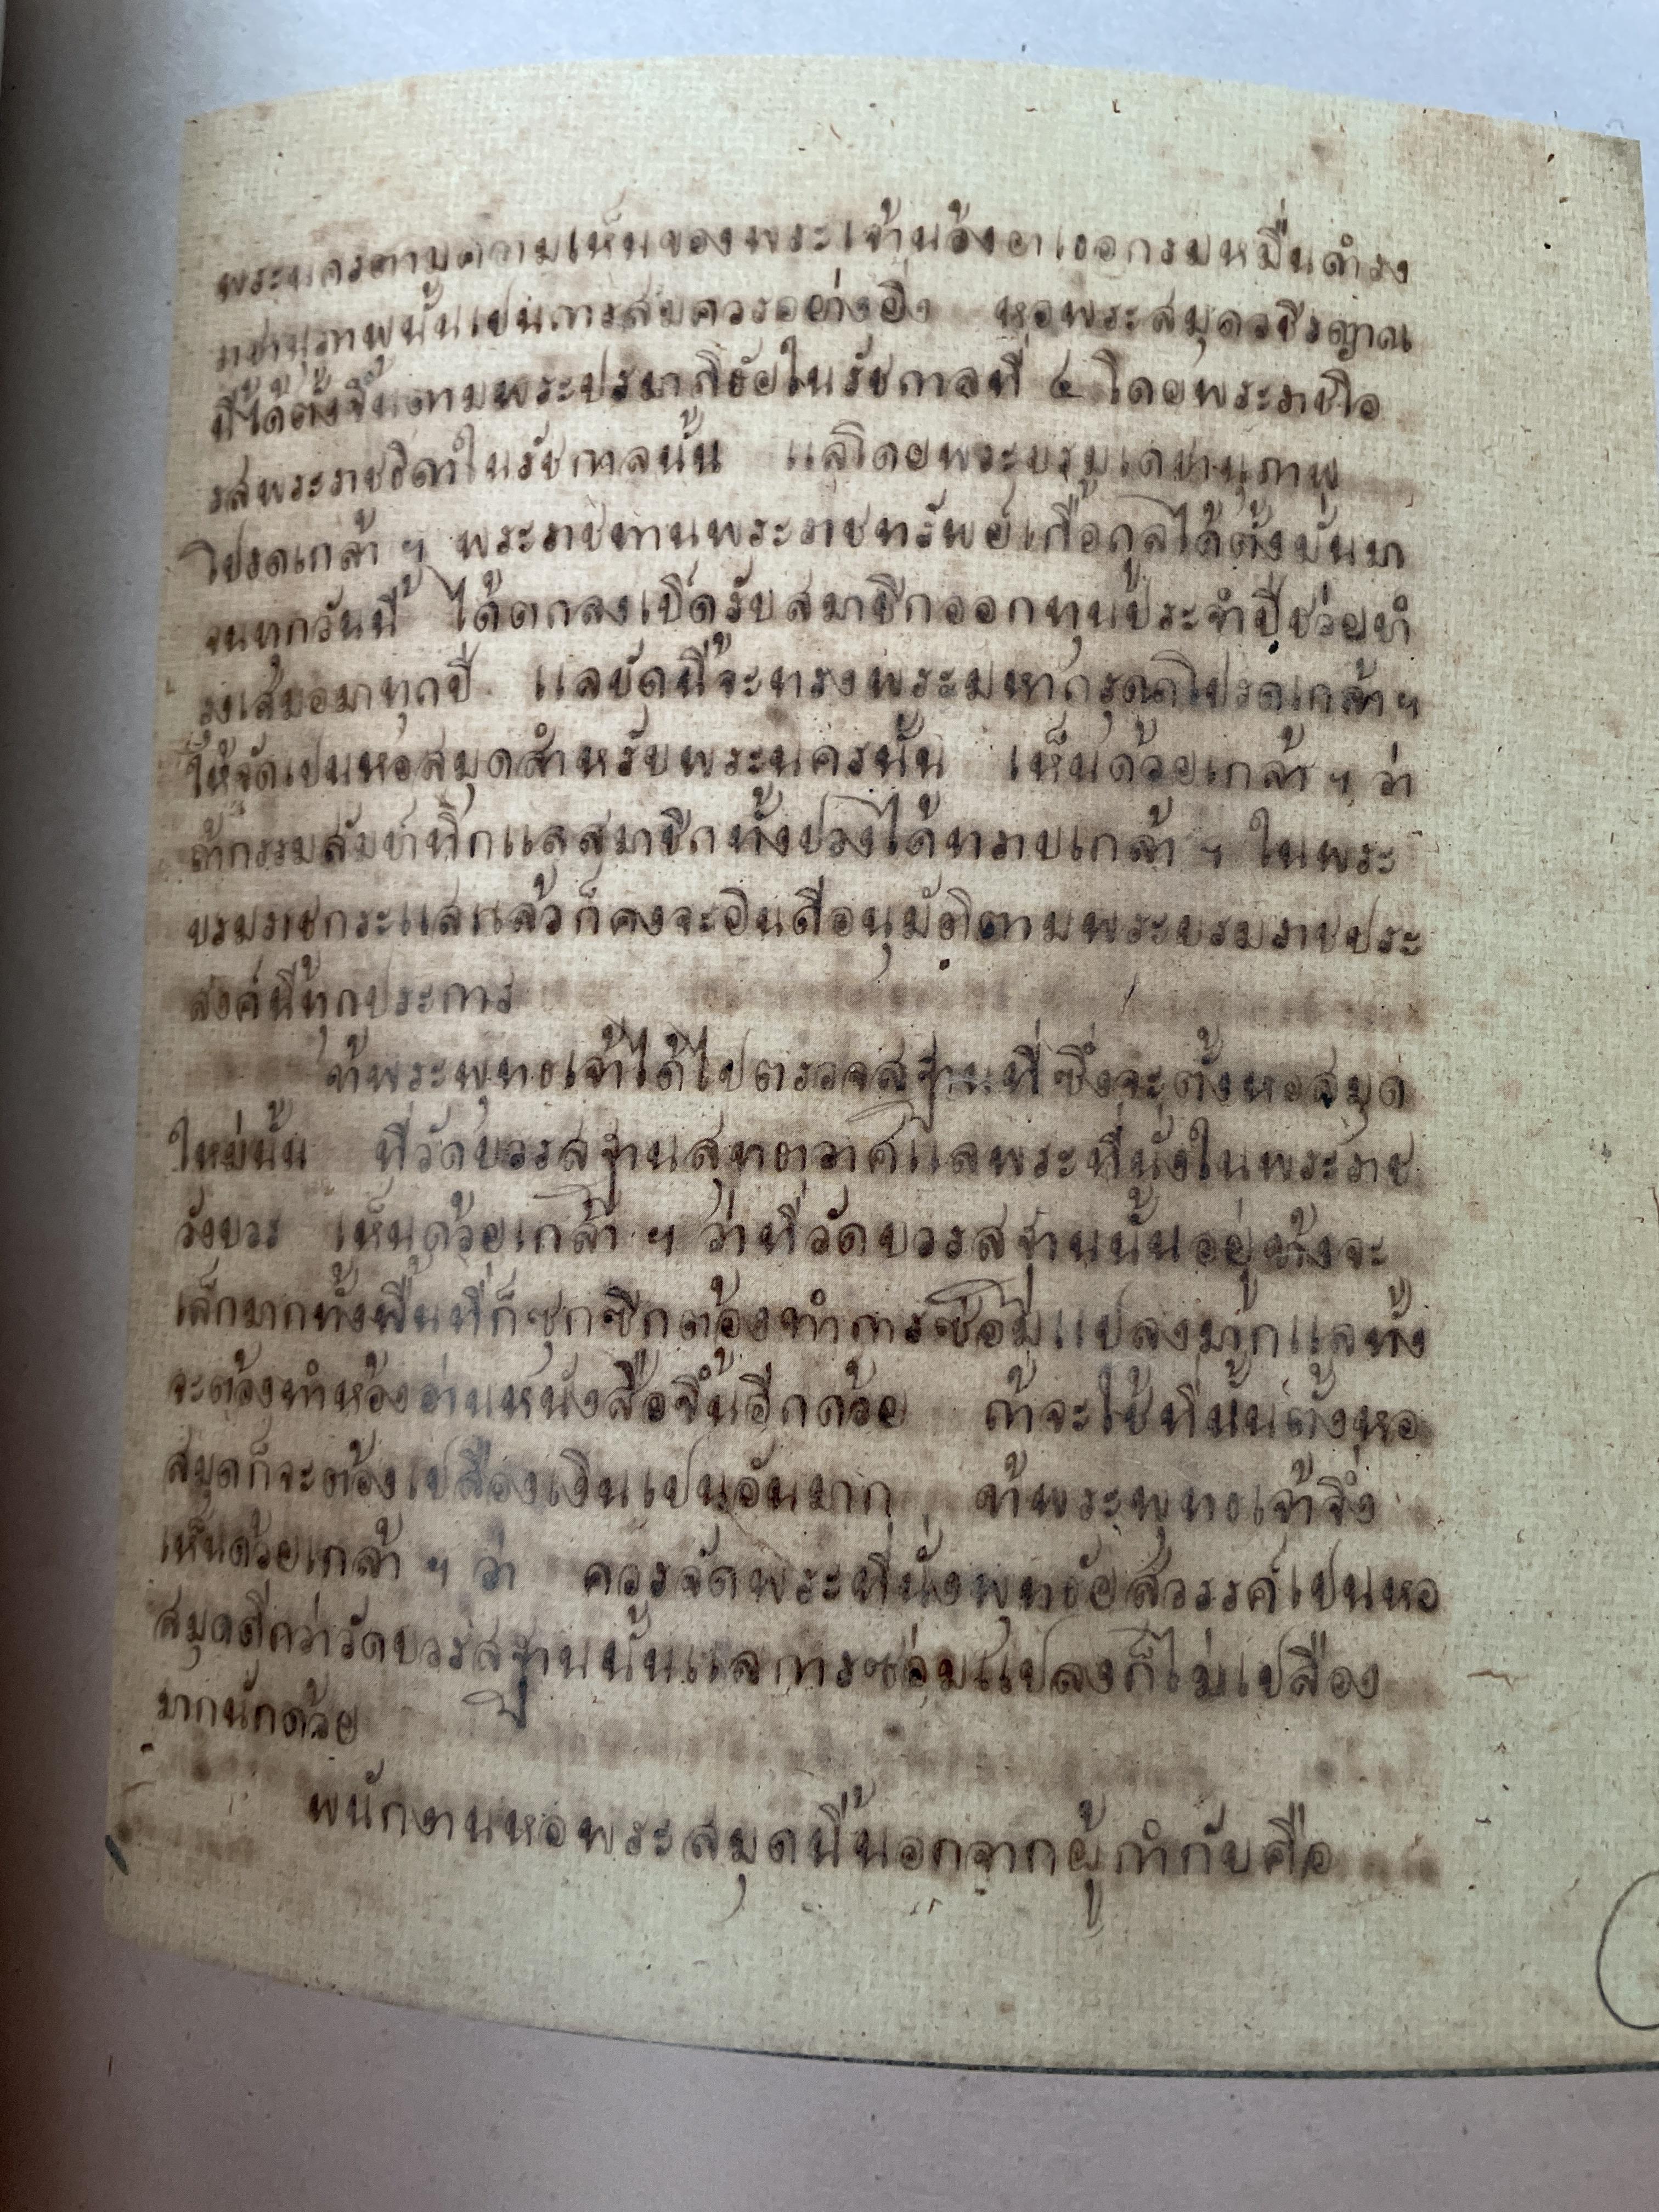 พระนครตามความเห็นของพระเจ้าน้องยาเธอกรมหมื่นดำรง
ราชานุภาพนั้นเปนการสมควรอย่างยิ่ง หอพระสมุดวชิรญาณ
ที่ได้ตั้งขึ้นตามพระปรมาภิธัยในรัชกาลที่ ๔ โดยพระราชโอ
รสพระราชธิดาในรัชกาลนั้น แลโดยพระบรมเดชานุภาพ
โปรดเกล้า ฯ พระราชทานพระราชทรัพย์เกื้อกูลได้ตั้งมั่นมา
จนทุกวันนี้ ได้ตกลงเปิดรับสมาชิกออกทุนประจำปีช่วยบำ
รุงเสมอมาทุกปี แลบัดนี้จะทรงพระมหากรุณาโปรดเกล้า ฯ
ให้จัดเปนหอสมุดสำหรับพระนครนั้น เห็นด้วยเกล้า ฯ ว่า
ถ้ากรรมสัมปาทิกแลสมาชิกทั้งปวงได้ทราบเกล้า ฯ ในพระ
บรมราชกระแสแล้วก็คงจะยินดีอนุมัติตามพระบรมราชประ
สงค์นี้ทุกประการ
ข้าพระพุทธเจ้าได้ไปตรวจสฐานที่ซึ่งจะตั้งหอสมุด
ใหม่นั้น ที่วัดบวรสฐานสุทธาวาศแลพระที่นั่งในพระราช
วังบวร เห็นด้วยเกล้า ฯ ว่าที่วัดบวรสฐานนั้นอยู่ข้างจะ
เล็กมากทั้งพื้นที่ก็ซุกซิกต้องทำการซ่อมแปลงมากแลทั้ง
จะต้องทำห้องอ่านหนังสือขึ้นอีกด้วย ถ้าจะใช้ที่นั้นตั้งหอ
สมุดก็จะต้องเปลืองเงินเปนอันมาก ข้าพระพุทธเจ้าจึ่ง
เห็นด้วยเกล้า ฯ ว่า ควรจัดพระที่นั่งพุทธัยสวรรค์เปนหอ
สมุดดีกว่าวัดบวรสฐานนั้นแลการซ่อมแปลงก็ไม่เปลือง
มากนักด้วย
พนักงานหอพระสมุดนี้นอกจากผู้กำกับคือ